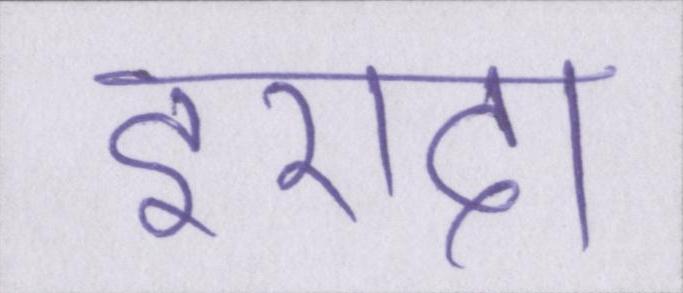 इरादा